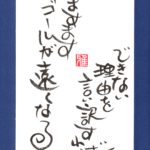 できない
理由を
言い訳すれば
ますます
ゴールが
遠くなる